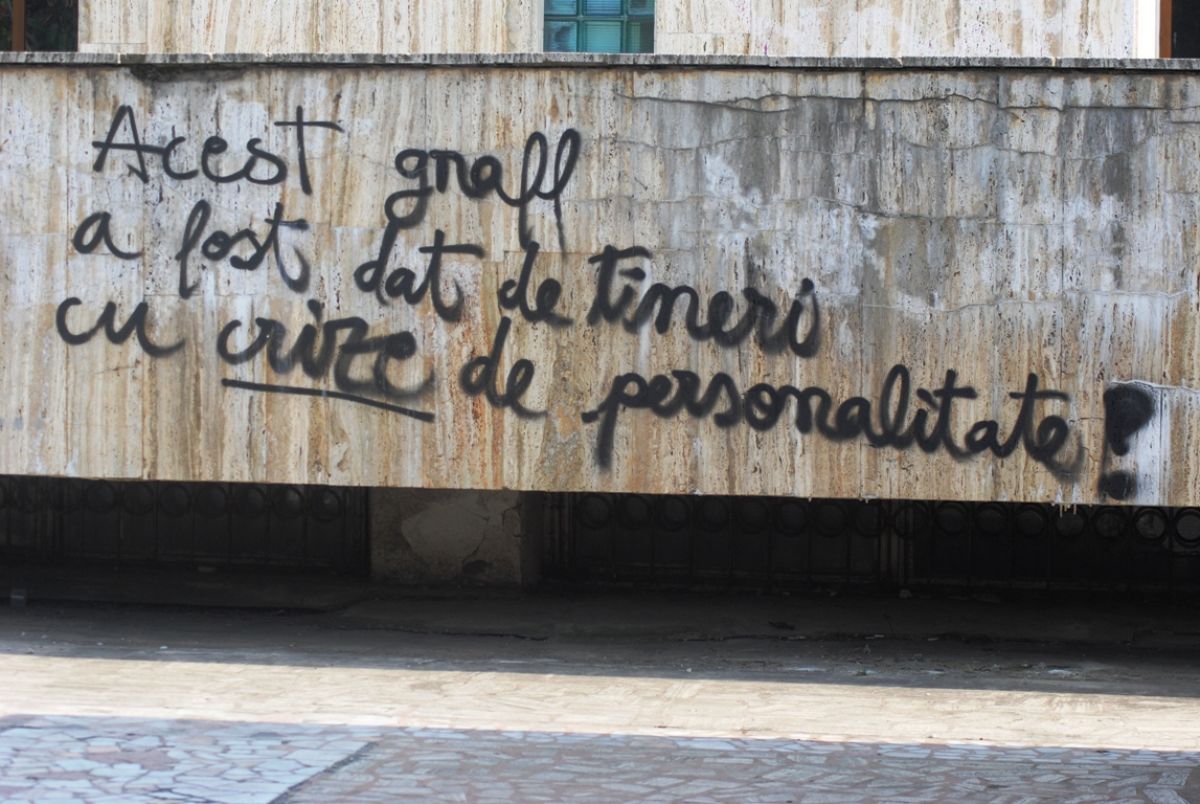 Acest graff
a fost dat de tineri
cu crize de personalitate!